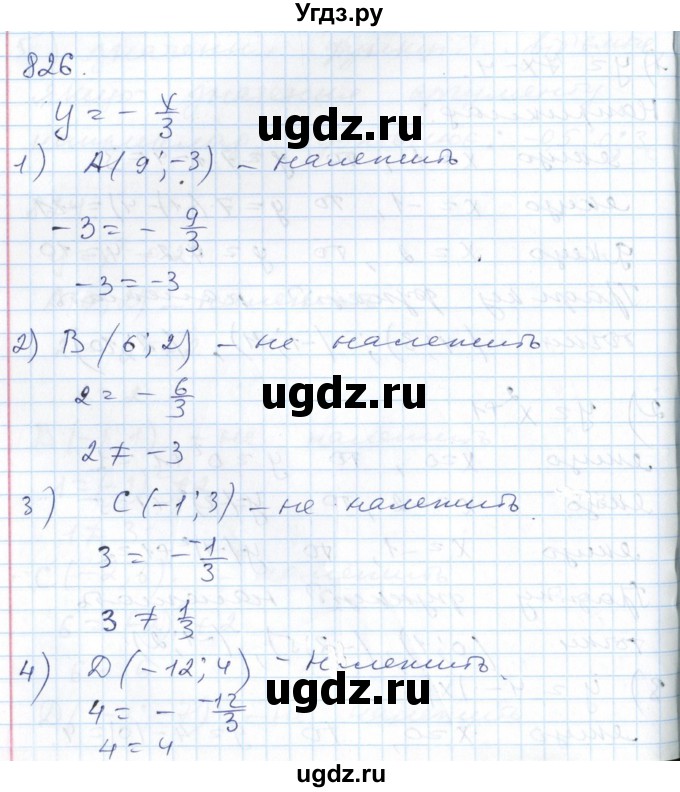 Угдз.ру
826.
y = - x/3
ugdz.ru
1) A(9; -3) - належить
-3 = - 9/3
ugdz.ru
-3 = -3
2) B(6; 2) - не належить
2 = - 6/3
ugdz.ru
2 ≠ -3
3) C(-1; 3) - не належить.
ugdz.ru
3 = - -1/3
3 ≠ 1/3
ugdz.ru
4) D(-12; 4) - належить.
4 = - -12/3
ugdz.ru
4 = 4
ugdz.ru